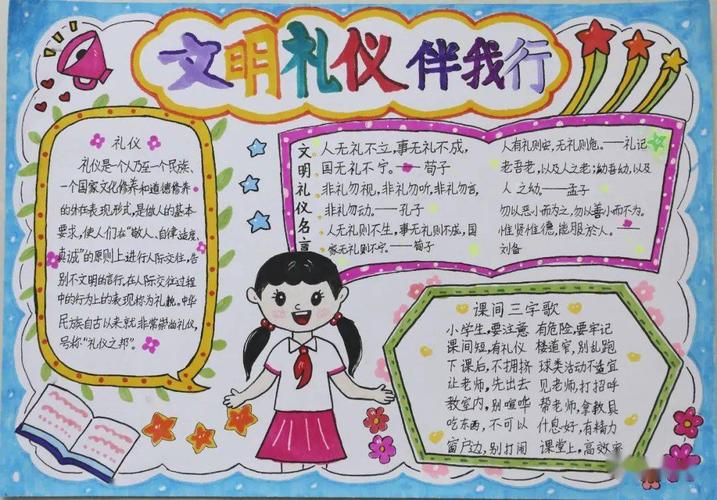 文明礼仪伴我行
礼仪
礼仪是一个人乃至一个民族、
一个国家文化修养和道德修养
的外在表现形式,是做人的基本
要求,使人们在“敬人、自律、适度、
真诚”的原则上进行人际交往,告
别不文明的言行。在人际交往过程
中的行为上的表现称为礼貌。中华
民族自古以来就非常崇尚礼仪,
号称“礼仪之邦”。
文明礼仪名言
人无礼不立,事无礼不成,
国无礼不宁。——荀子
非礼勿视,非礼勿听,非礼勿言,
非礼勿动。——孔子
人无礼则不生,事无礼则不成,国
家无礼则不宁。——荀子
人有礼则安,无礼则危。——礼记
老吾老,以及人之老;幼吾幼,以及
人之幼。——孟子
勿以恶小而为之,勿以善小而不为。
惟贤惟德,能服於人。——
刘备
课间三字歌
小学生,要注意 有危险,要牢记
课间短,有礼仪 楼道窄,别乱跑
下课后,不拥挤 球类活动不适宜
让老师,先出去 见老师,打招呼
教室内,别喧哗 帮老师,拿教具
吃东西,不可以 休息好,有精力
窗户边,别打闹 课堂上,高效率